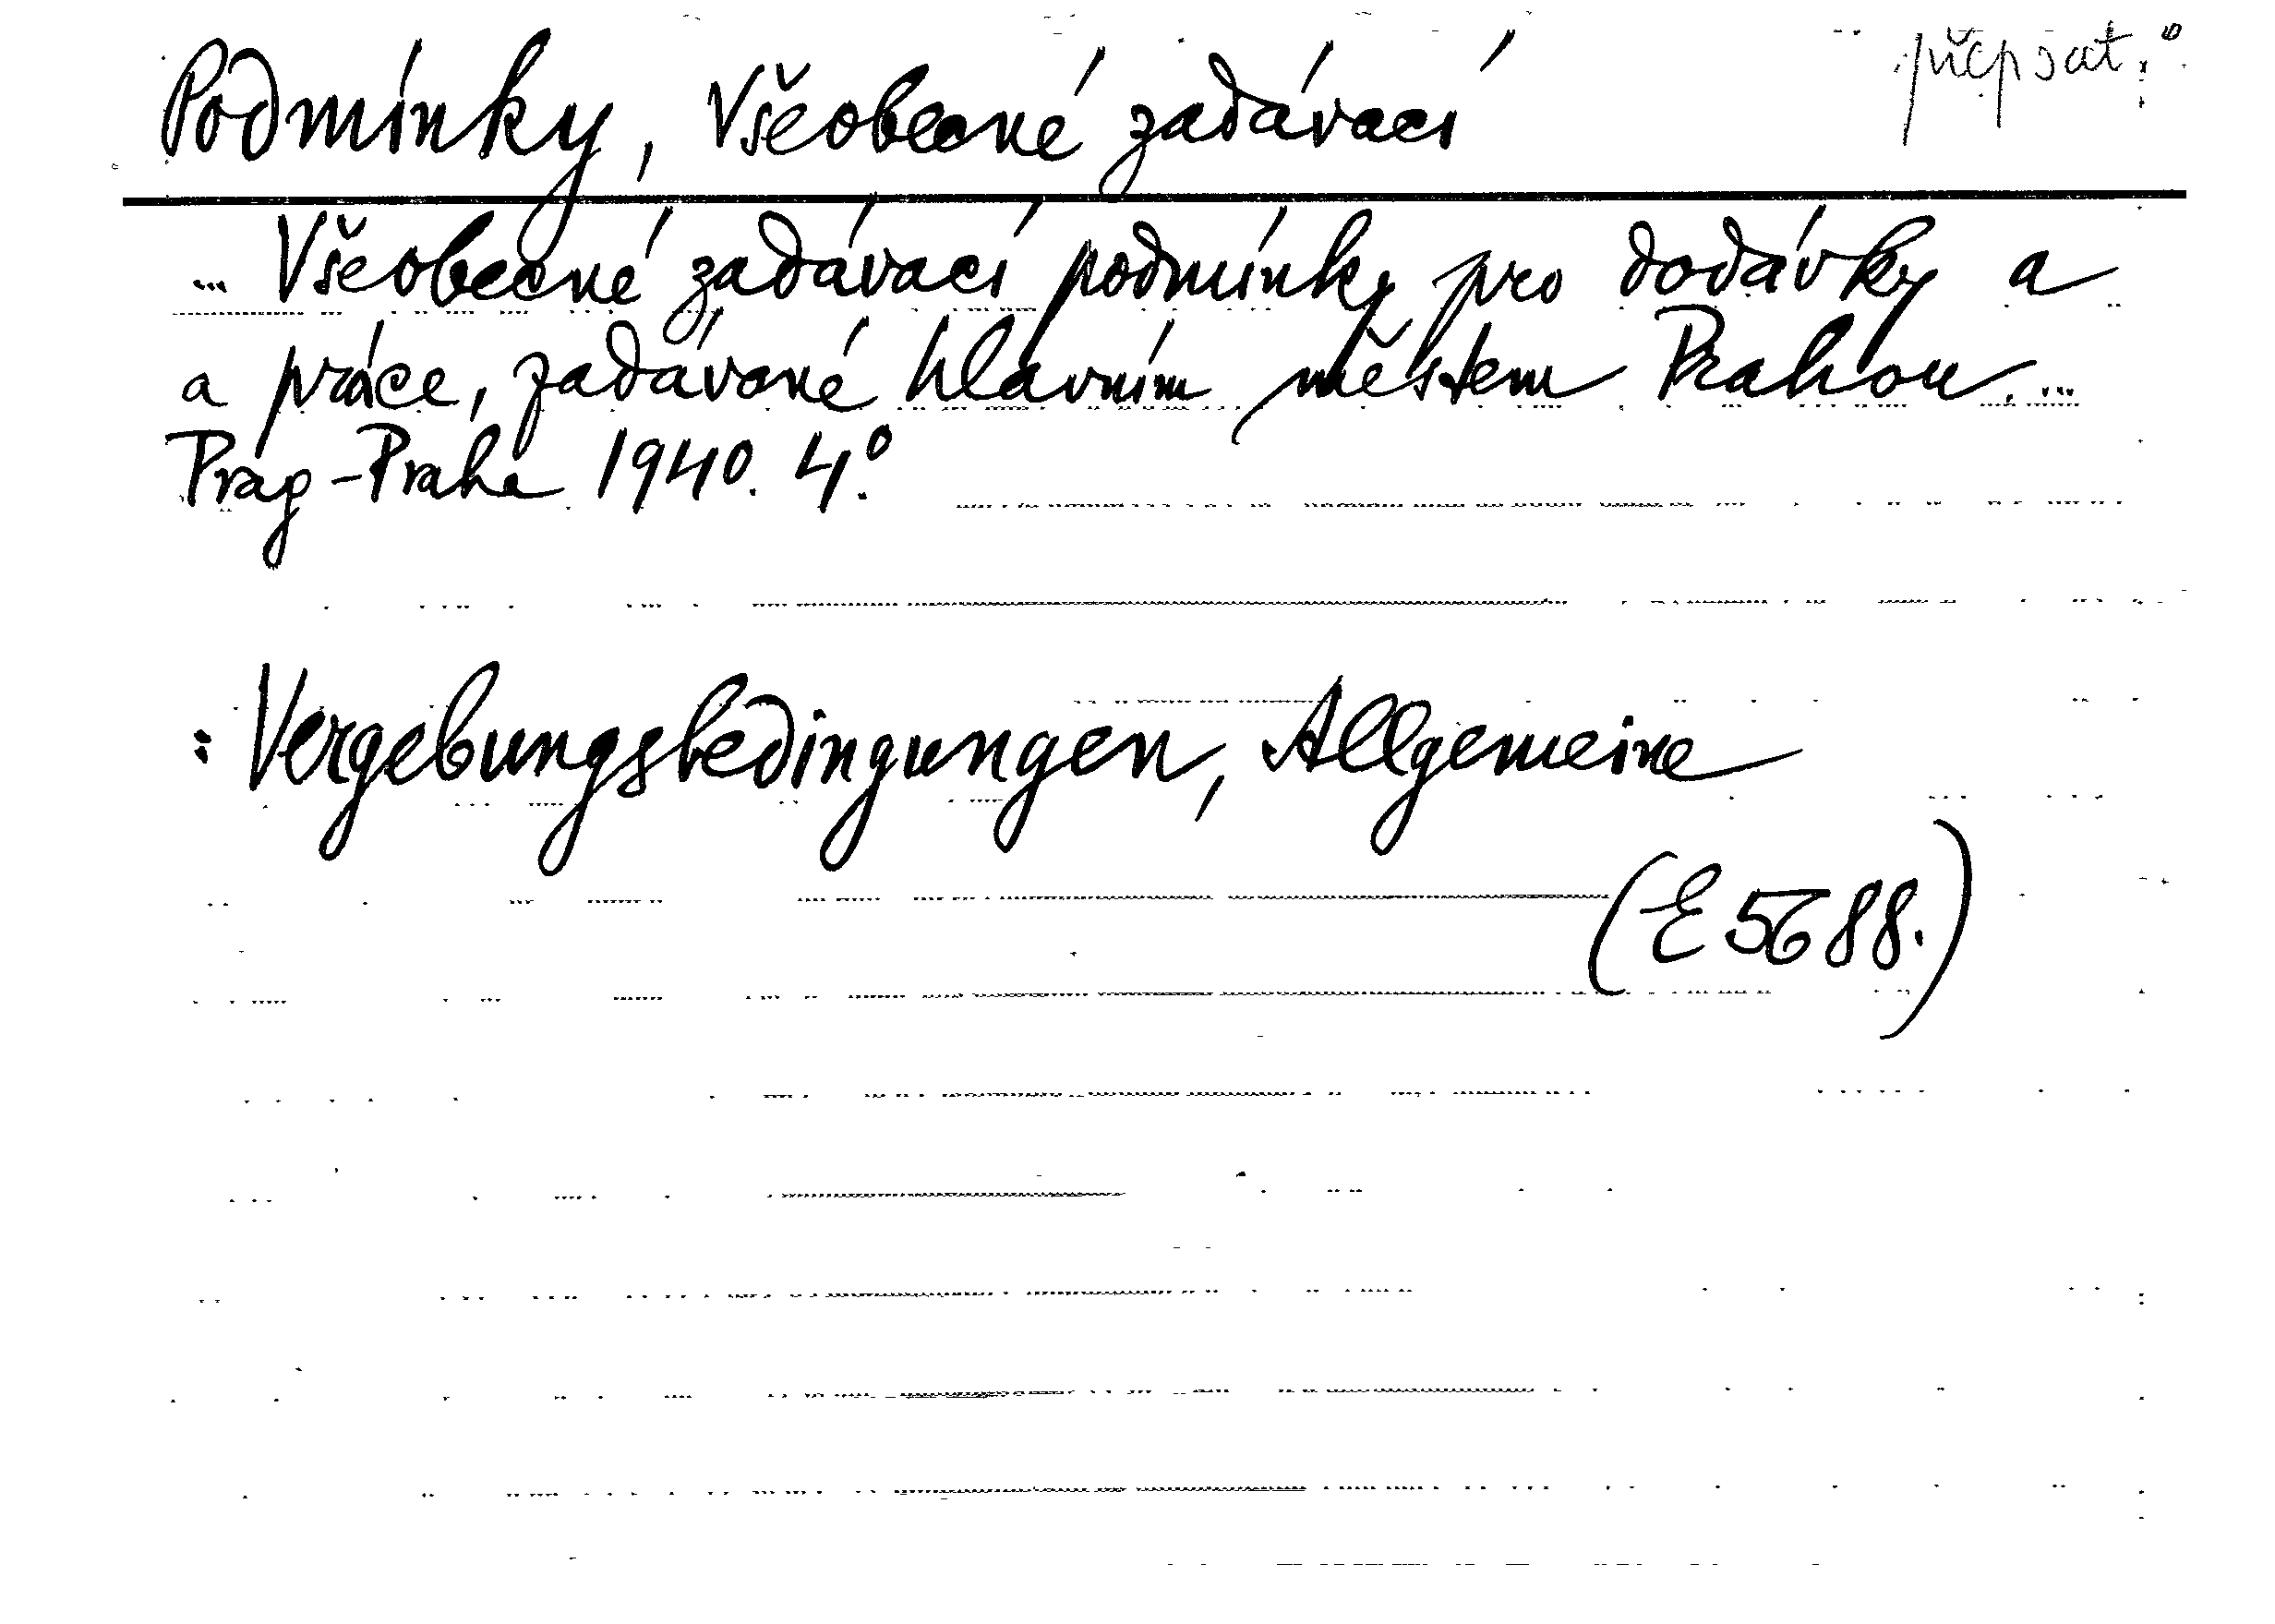 přepsat.
Podmínky, Všeobecné zadávací
... Všeobecné zadávací podmínky pro dodávky a
a práce, zadávané hlavním městem Prahou. ...
Prag-Praha 1940. 4.º
: Vergebungsbedingungen, Allgemeine
(E 5688.)